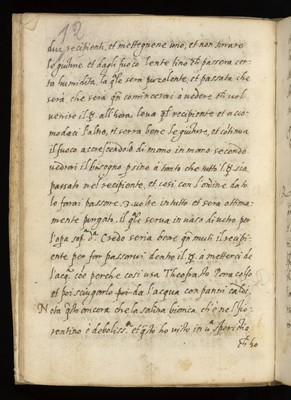 12
due recipienti, et mettegnene uno, et non serrare
le giunture, et dagli fuoco lente sino ch passera cer-
ta humidità, la qle sera puzolente, et passata che
serà che sera qn comincerai à vedere ch vol
venire il ☿. all'hora leva ql recipiente et acco-
modaci l'altro, et serra bene le giunture, et continua
il fuoco accrescendolo di mano in mano secondo
vedrai il bisogno p sino à tanto che tutto l ☿ sia
passato nel recipiente, et cosi con l'ordine dato
lo farai passare 3. volte in tutto et sera ottima-
mente purgato, il qle serva in vaso di vetro per
l'opa sop.ª d.ª Credo seria bene qn muti il recipi-
ente per far passarvi dentro il ☿. à metterci de
l'acq.ª cõe perche cosi usa Theofrasto
et poi sciugarlo poi da l'acqua con panni caldi.
Nota qsto ancora che la salina bianca, ch è nel fio-
rentino è deboliss.ª et qsto ho visto in u.ª sperientia
ch ho